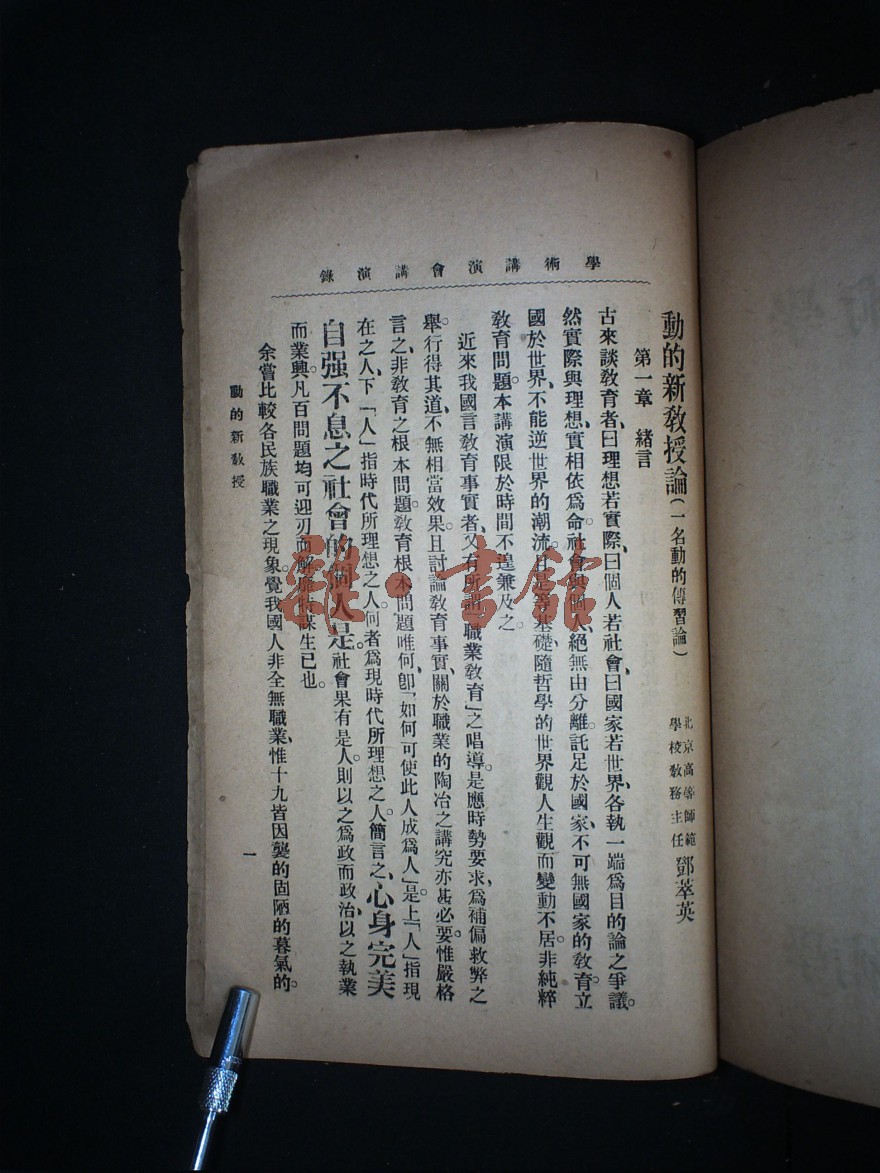 學術講演會講演錄
動的新教授論(一名動的傳習論)
北京高等師範
學校教務主任
鄧萃英
第一章 緒言
古來談教育者、曰理想若實際、曰個人若社會、曰國家若世界、各執一端爲目的論之爭議。
然實際與理想、實相依爲命。社會與個人、絕無由分離。託足於國家、不可無國家的教育。立
國於世界、不能逆世界的潮流。且是等基礎、隨哲學的世界觀人生觀而變動不居。非純粹
教育問題。本講演限於時間不遑兼及之。
近來我國言教育事實者、又有所謂「職業教育」之唱導。是應時勢要求、爲補偏救弊之
舉。行得其道、不無相當效果。且討論教育事實、關於職業的陶冶之講究亦甚必要。惟嚴格
言之、非教育之根本問題。教育根本問題唯何、卽「如何可使此人成爲人」是。上「人」指現
在之人、下「人」指時代所理想之人。何者爲現時代所理想之人。簡言之、心身完美
自强不息之社會的個人是。社會果有是人、則以之爲政而政治、以之執業
而業興。凡百問題、均可迎刃而解。庸特謀生已也。
余嘗比較各民族職業之現象。覺我國人非全無職業、惟十九皆因襲的固陋的暮氣的。
動的新教授
一
雜·書館